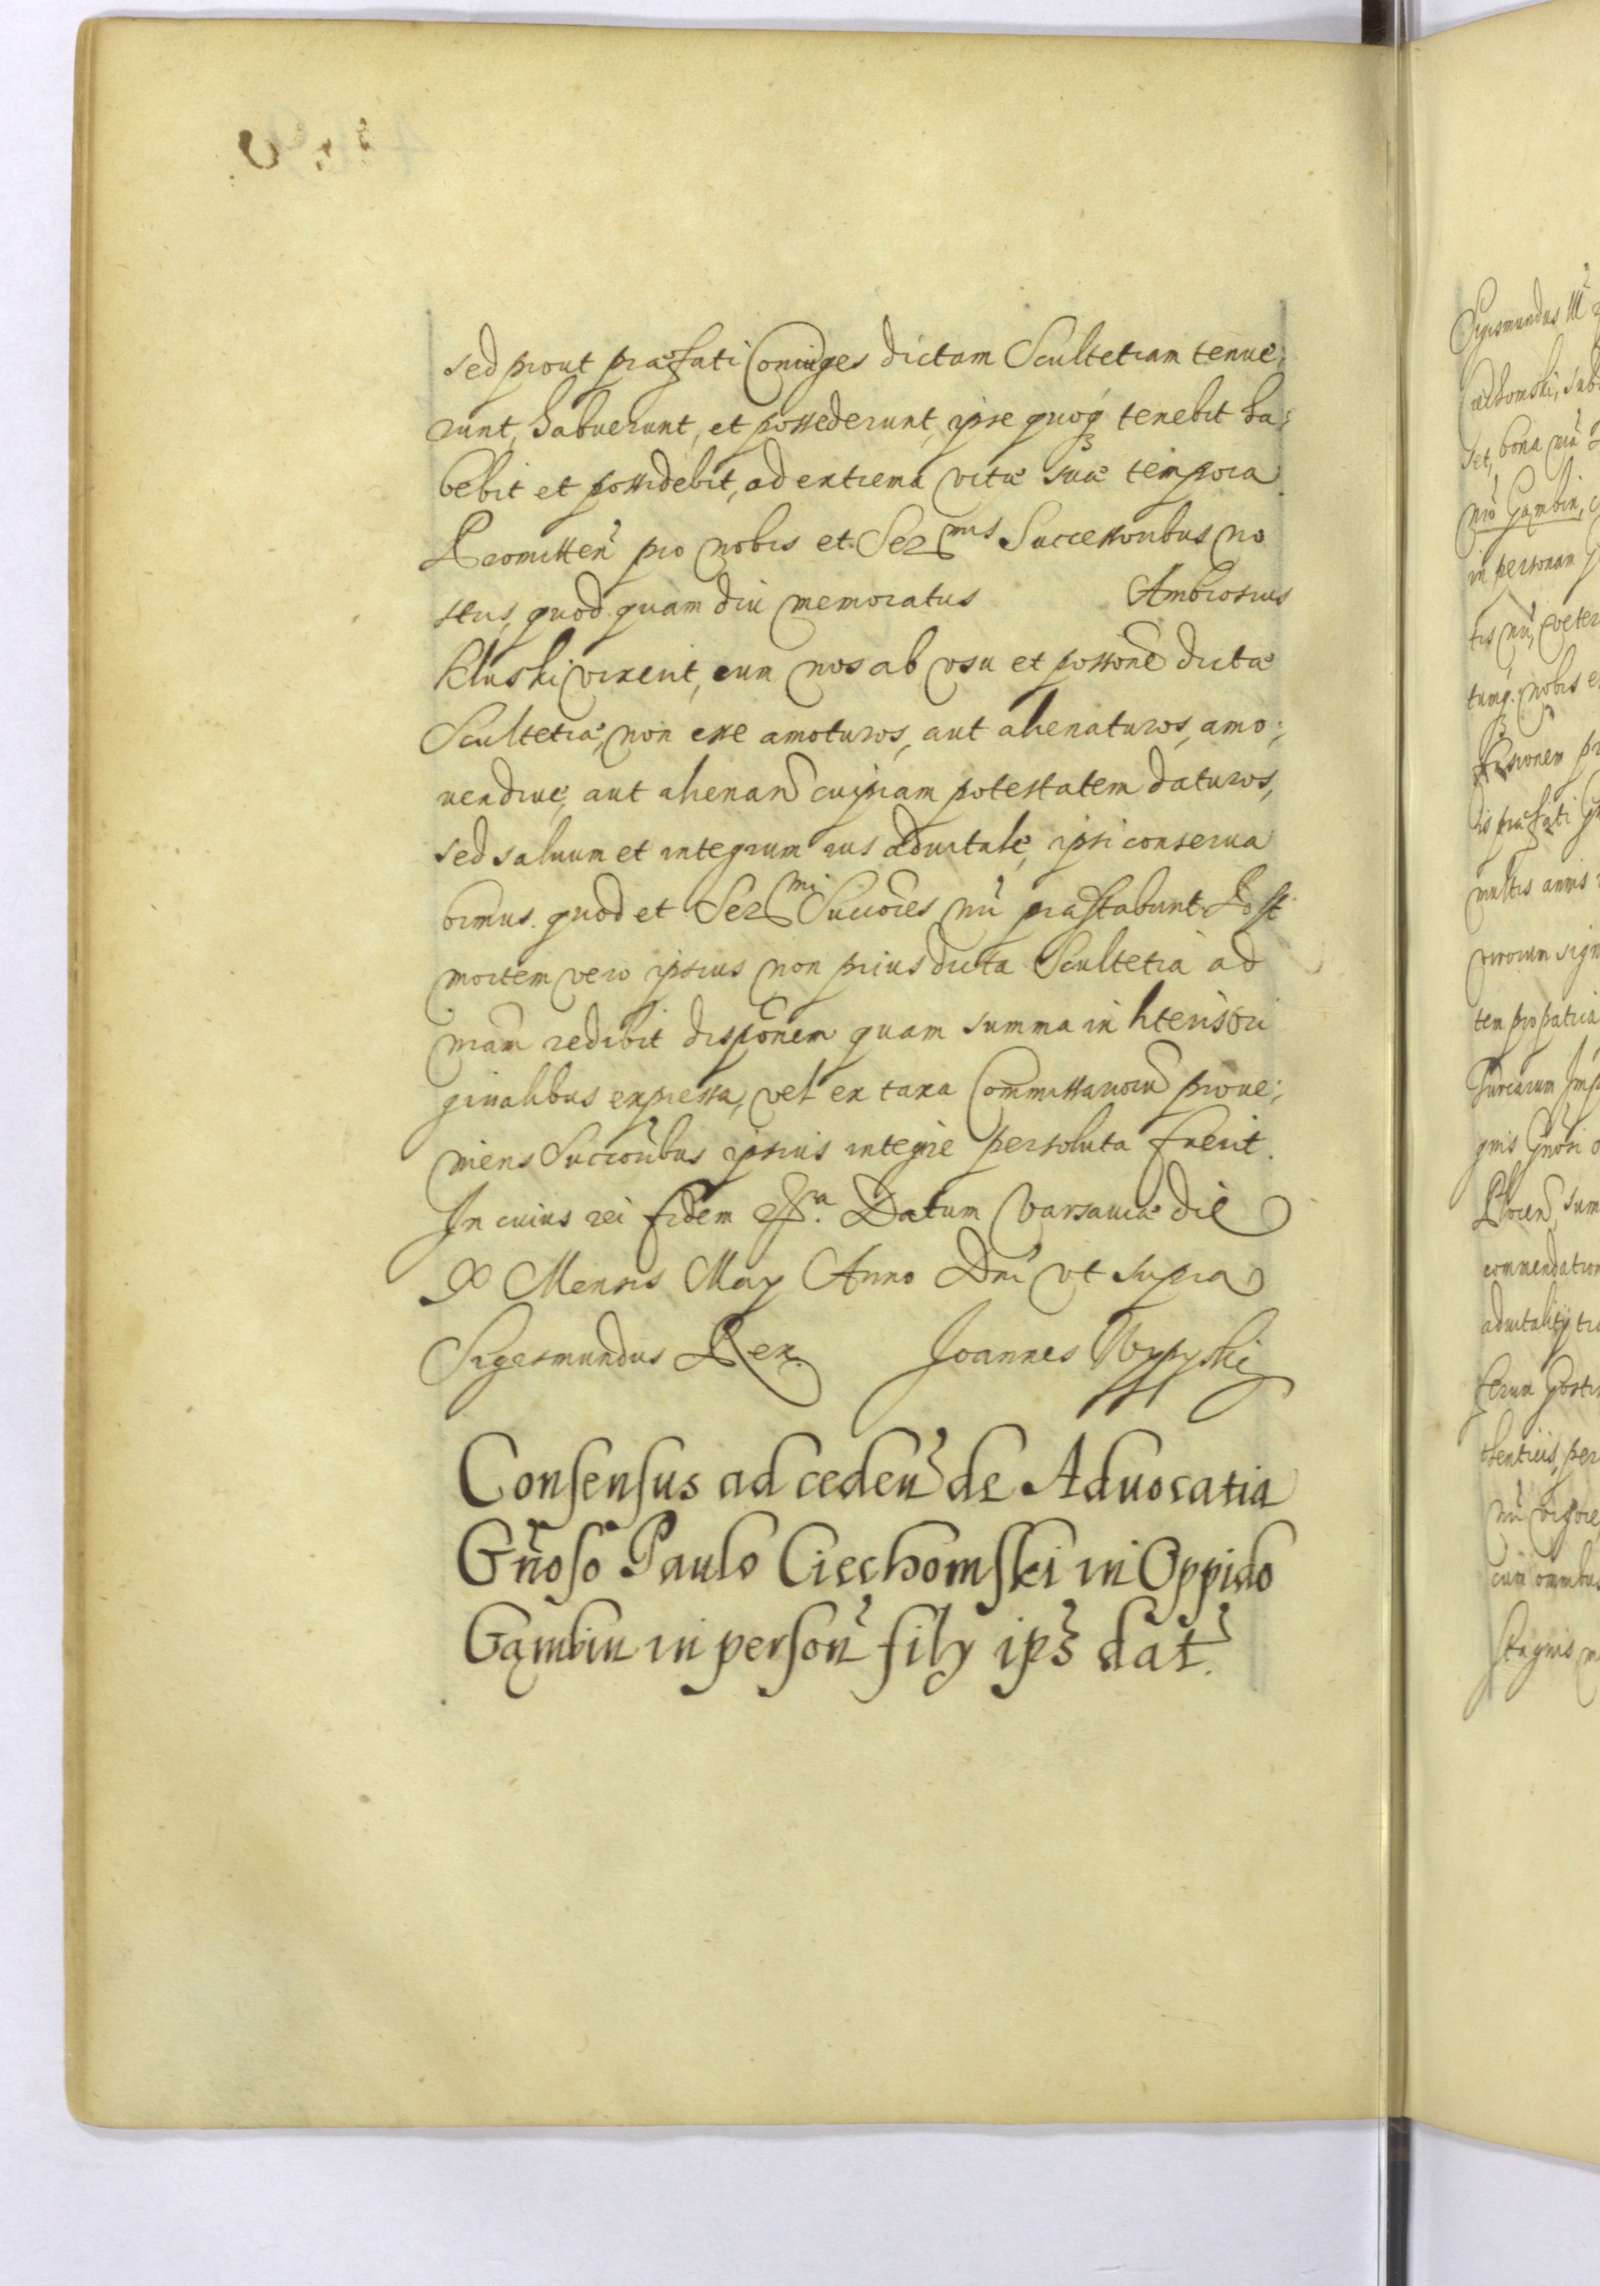 sed prout præfati Coniuges dictam Scultetiam tenue;
runt, habuerunt, et possederunt, ipse quoq tenebit ha;
bebit et possidebit, ad extrema vitæ suæ tempora
Promitten pro nobis et Ser mis Successoribus no
stris, quod quam diu memoratus Ambrosius
Kluski vixerit, eum nos ab vsu et possone dictæ
Scultetiæ, non esse amoturos, aut alienaturos, amo;
uendiue, aut alienand cuipiam potestatem daturos,
sed saluum et integrum ius aduitale, ipsi conserua
bimus. quod et Ser mi Succores nri præstabunt Post
mortem vero ipsius non prius dicta Scultetia ad
nram redibit disponem quam summa in literis ori
ginalibus expressa, vel ex taxa Commissariorū proue;
niens Succoribus ipsius integre persoluta fuerit.
In cuius rei fidem &c a. Datum Varsauiæ die
X Mensis May Anno Dni vt supra
Sigismundus Rex. Joannes Wypyski
Consensus ad ceden de Aduocatia
Gñoso Paulo Ciechomski in Oppido
Gąmbin in person fily ips dat.
Sigismundus III
Ciechomski, sub
set, bona nra
nro Gąmbin,
in personam
tis nri, veter
tumq. nobis e
is præfati
multis annis
virorum sign
tem pro patria
Turcarum Imp
gnis Gnosi
Plocen, sum
commendation
aduitality
ferum Gosti
thenticis, per
cum omnibus
stagnis